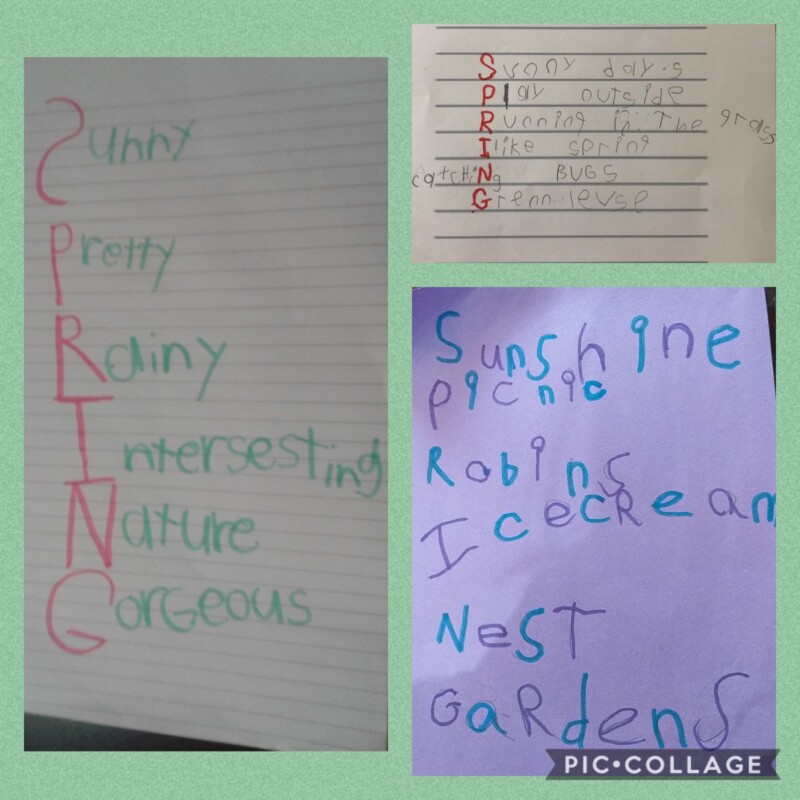 Sunny
Pretty
Rainy
Intersesting
Nature
Gorgeous
Sunny day.s
Play outside
Running in The grass
I like spring
catching BUGS
Grenn levse
SunShine
picnic
Robins
IcecReam
NeST
GaRdenS
PIC•COLLAGE